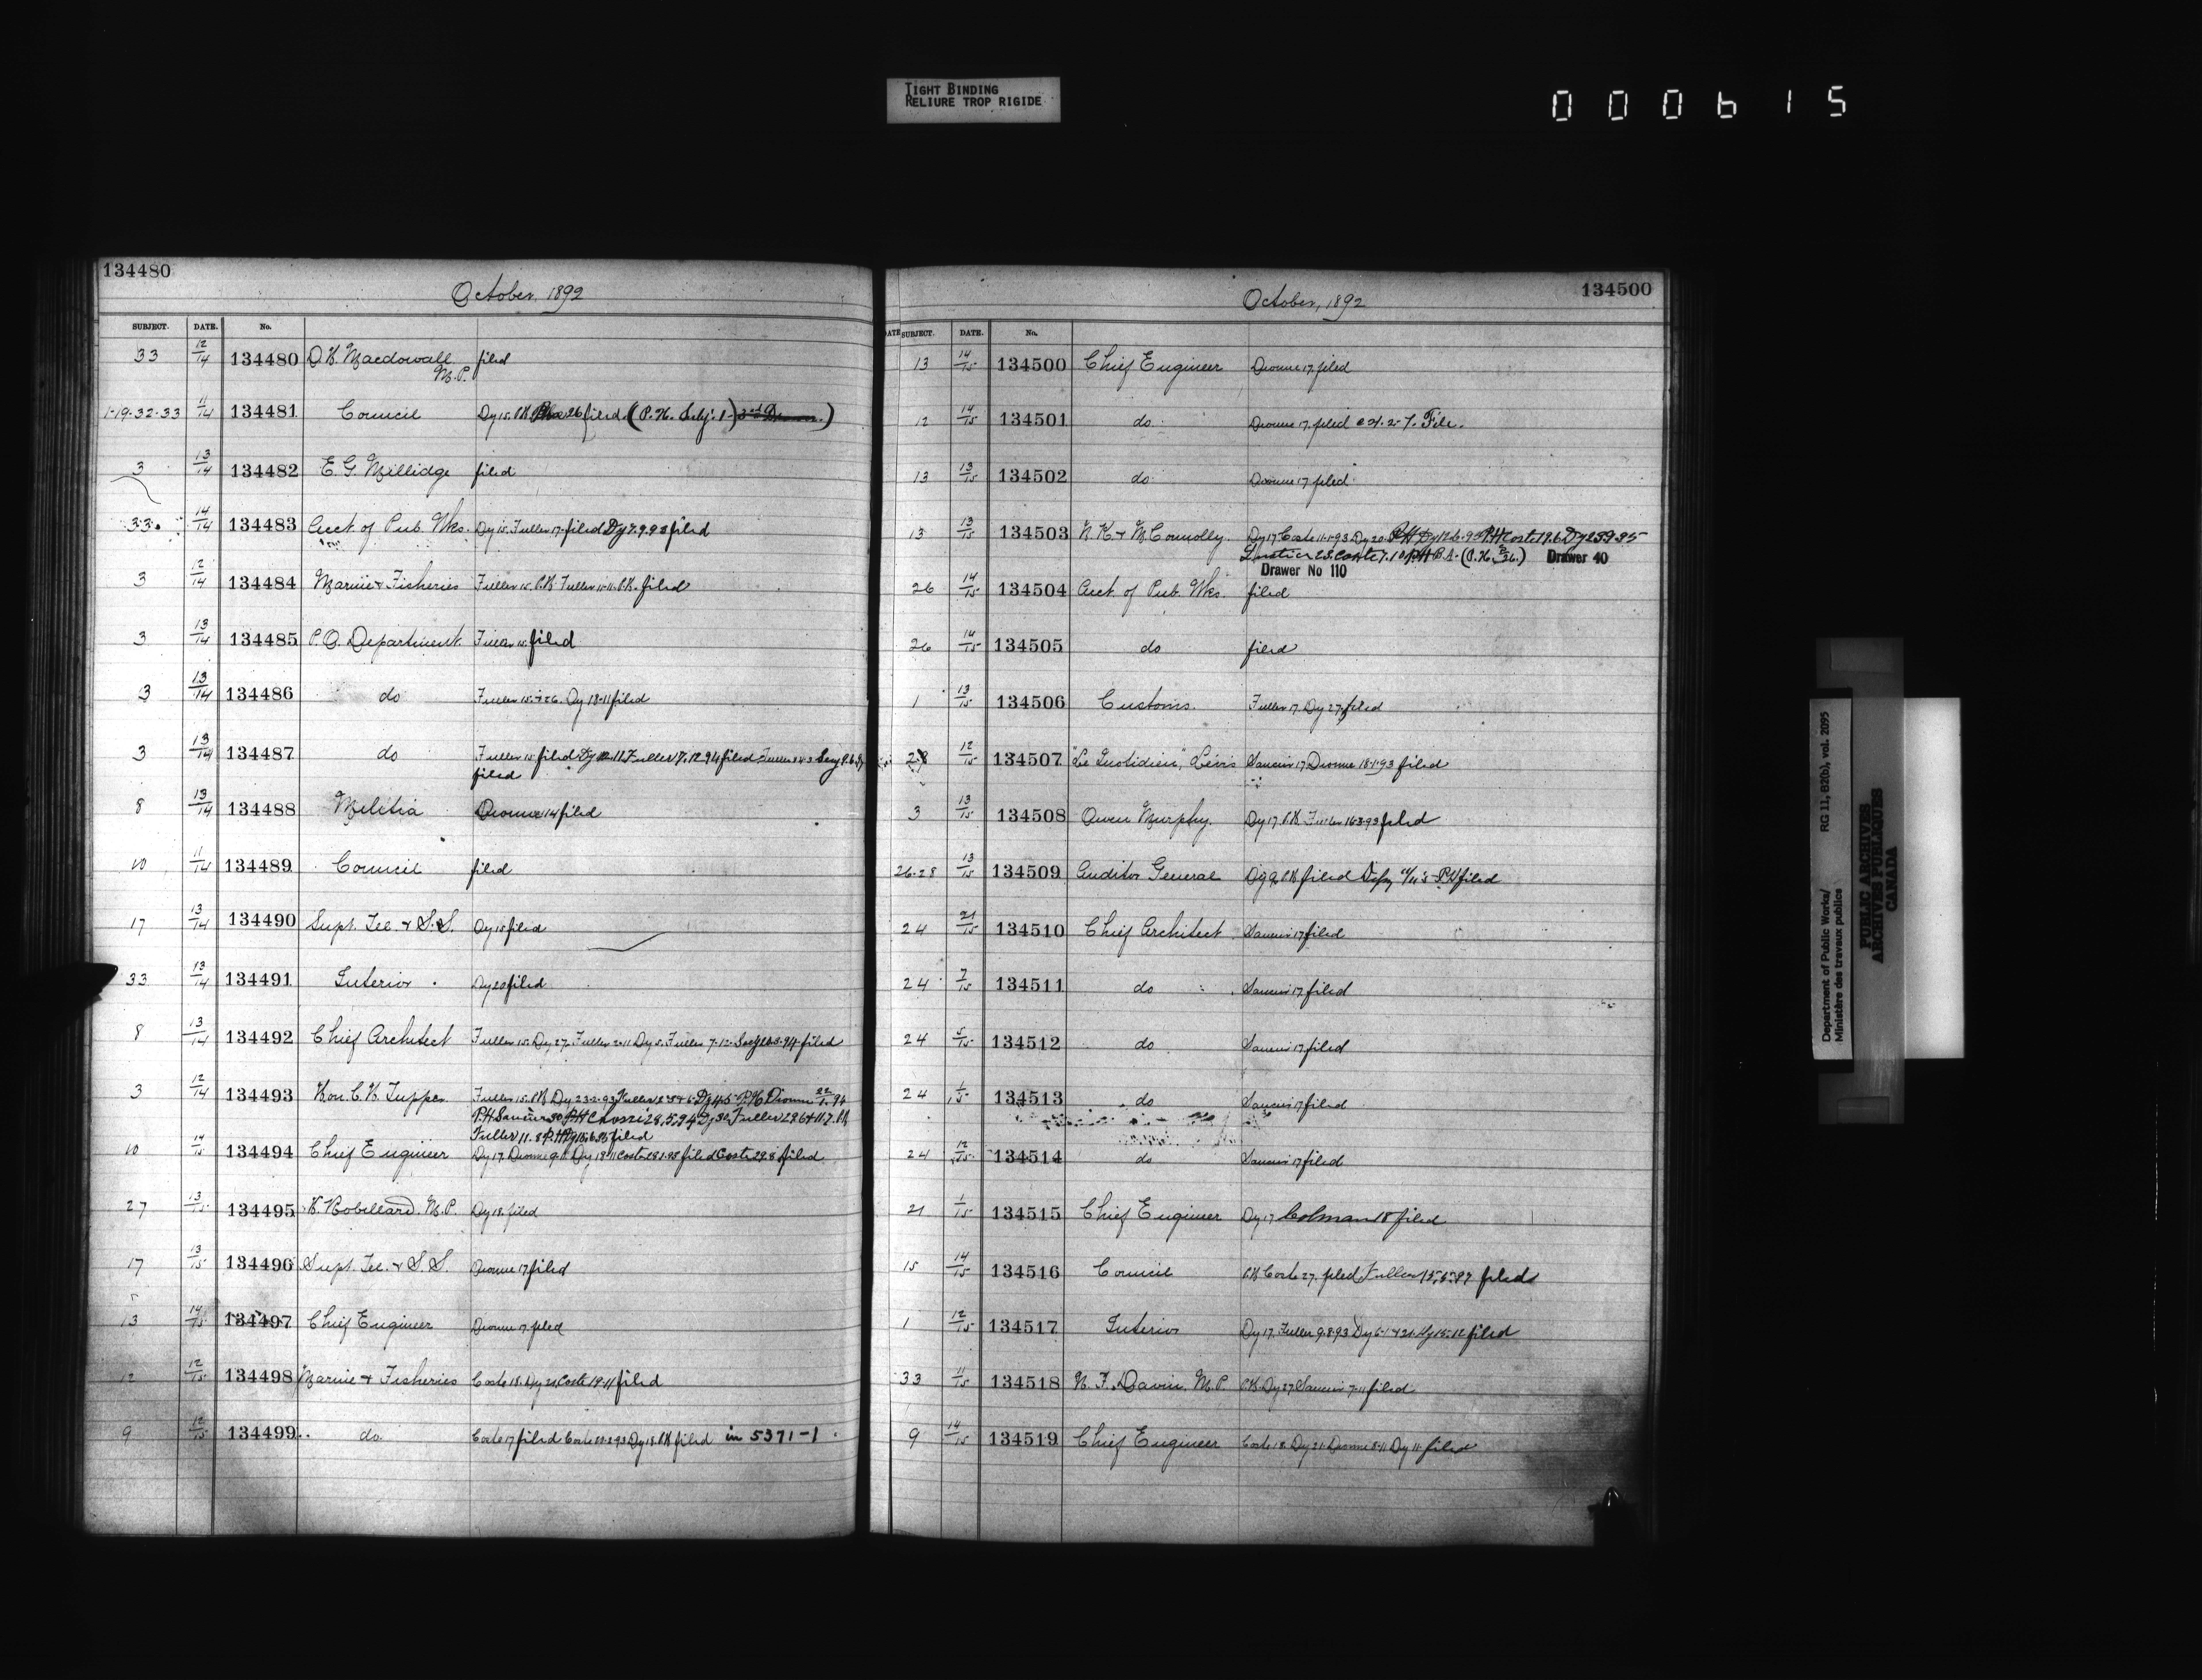 TIGHT BINDING
RELIURE TROP RIGIDE
000615
134480
October, 1892
SUBJECT. DATE. No.
33 12/14 134480 D. H. Macdowall M.P. filed
1-19-32-33 11/14 134481 Council Dy 15. P.H. 26 filed (P.H. Subj. 1-)
3 13/14 134482 E. G. Millidge filed
33. 14/14 134483 Acct. of Pub. Wks. Dy 15. Fuller 17. filed Dy 7.9.93 filed
3 12/14 134484 Marine & Fisheries Fuller 15. P.H. Fuller 15-11. P.H. filed
3 13/14 134485 P.O. Department. Fuller 15. filed
3 13/14 134486 do Fuller 15. & 26. Dy 18-11 filed
3 13/14 134487 do Fuller 15 filed Dy 12.11 Fuller 17.12.94 filed Fuller
filed
8 13/14 134488 Militia Dionne 14 filed
10 11/14 134489 Council filed
17 13/14 134490 Supt. Tel. & S.S. Dy 15 filed
33 13/14 134491 Interior Dy 20 filed
8 13/14 134492 Chief Architect Fuller 15. Dy 27. Fuller 2-11 Dy 5. Fuller 7-12- filed
3 12/14 134493 Hon. C. H. Tupper Fuller 15. P.H. Dy 23-2-93 Fuller Dy P.H. Dionne 94
P.H. Saucier 30 P.H. 28.5.94 Dy 30 Fuller 29.6
Fuller 11.8 P.H. filed
10 14/15 134494 Chief Engineer Dy 17. Dionne 9-11 Dy 18-11 Coste 28.1.93 filed Coste 29.8 filed
27 13/15 134495 H. Robillard. M.P. Dy 18. filed
17 13/15 134496 Supt. Tel. & S.S. Dionne 17 filed
13 14/15 134497 Chief Engineer Dionne 17. filed
12 12/15 134498 Marine & Fisheries Coste 18. Dy 21. Coste 19-11 filed
9 12/15 134499 do Coste 17 filed Coste Dy 18. P.H. filed in 5371-1
134500
October, 1892
DATE SUBJECT. DATE. No.
13 14/15 134500 Chief Engineer Dionne 17. filed
12 14/15 134501 do Dionne 17. filed File.
13 13/15 134502 do Dionne 17 filed
13 13/15 134503 N. K. & M. Connolly. Dy 17 Coste 11-1-93 Dy 20. P.H. Dy 12-6-95 P.H. Coste 19.6 Dy
(P.H. 26.) Drawer 40
Drawer No 110
26 14/15 134504 Acct. of Pub. Wks. filed
26 14/15 134505 do filed
1 13/15 134506 Customs. Fuller 17. Dy 27. filed
28 12/15 134507 "Le Quotidien", Lévis Saucier 17. Dionne 18-1-93 filed
3 13/15 134508 Owen Murphy. Dy 17. P.H. Fuller 16.3.93 filed
26-28 13/15 134509 Auditor General P.H. filed P.H. filed
24 21/15 134510 Chief Architect. Saucier 17 filed
24 7/15 134511 do Saucier 17 filed
24 5/15 134512 do Saucier 17. filed
24 1/15 134513 do Saucier 17 filed
24 12/15 134514 do Saucier 17 filed
21 1/15 134515 Chief Engineer Dy 17 Colman 18 filed
15 14/15 134516 Council P.H. Coste 27. filed Fuller filed
1 12/15 134517 Interior Dy 17. Fuller 9.8.93 Dy 15.12 filed
33 11/15 134518 N. F. Davin. M.P. P.H. Dy 27. Saucier 7-11 filed
9 14/15 134519 Chief Engineer Coste 18. Dy 21. Dionne 8-11 Dy 11. filed
Department of Public Works/ RG 11, B2(b), vol. 2095
Ministère des travaux publics
PUBLIC ARCHIVES
ARCHIVES PUBLIQUES
CANADA